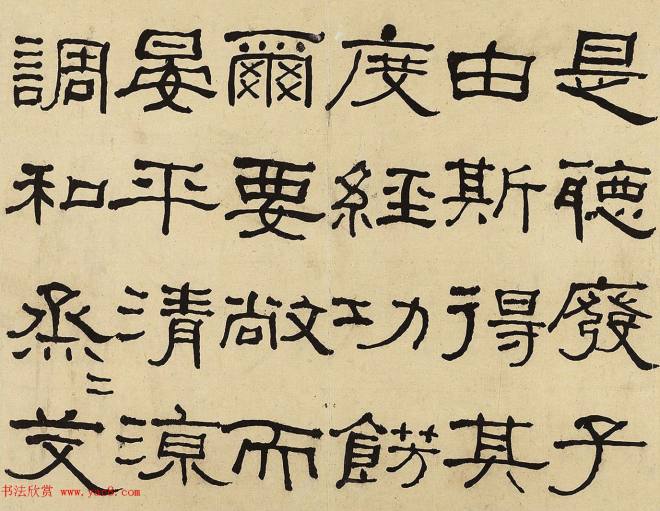 是聽廢子
由斯得其
度經功
爾要敞而
晏平清涼
調和烝〻艾
书法欣赏 www.yac8.com